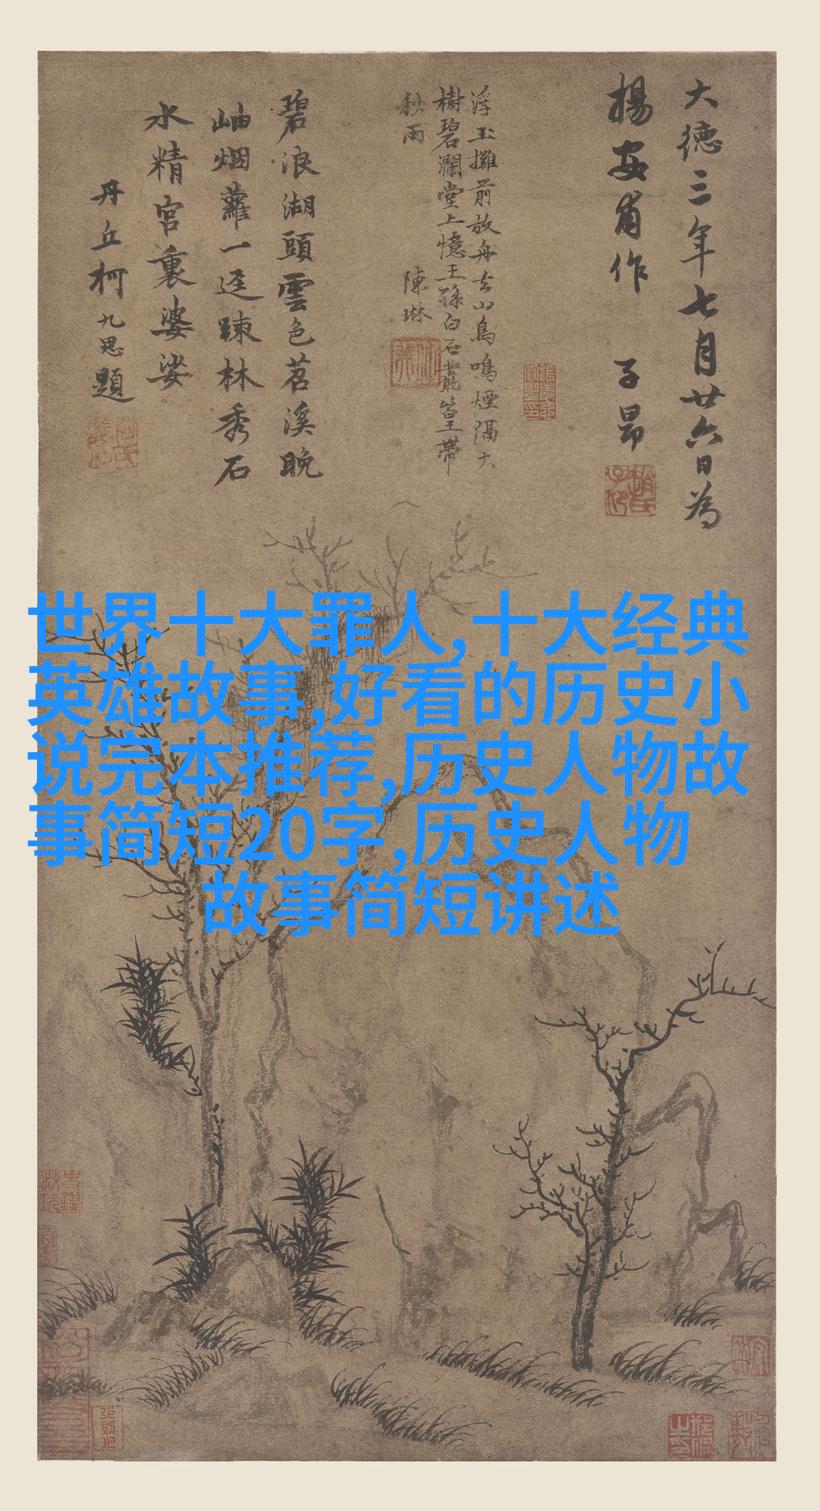 大德三年七月廿六日為
楊安甫作 子昂
浮玉攤前放舟去山鳥鳴煙隔大
樹碧瀾堂上憶王孫白石叢篁帶
秋雨 陳琳
碧浪湖頭雲色苕溪晚
岫烟蘿一逕踈林秀石
水精宮裏婆娑
丹丘柯九思題
世界十大罪人,十大经典
英雄故事,好看的历史小
说完本推荐,历史人物故
事简短20字,历史人物
故事简短讲述